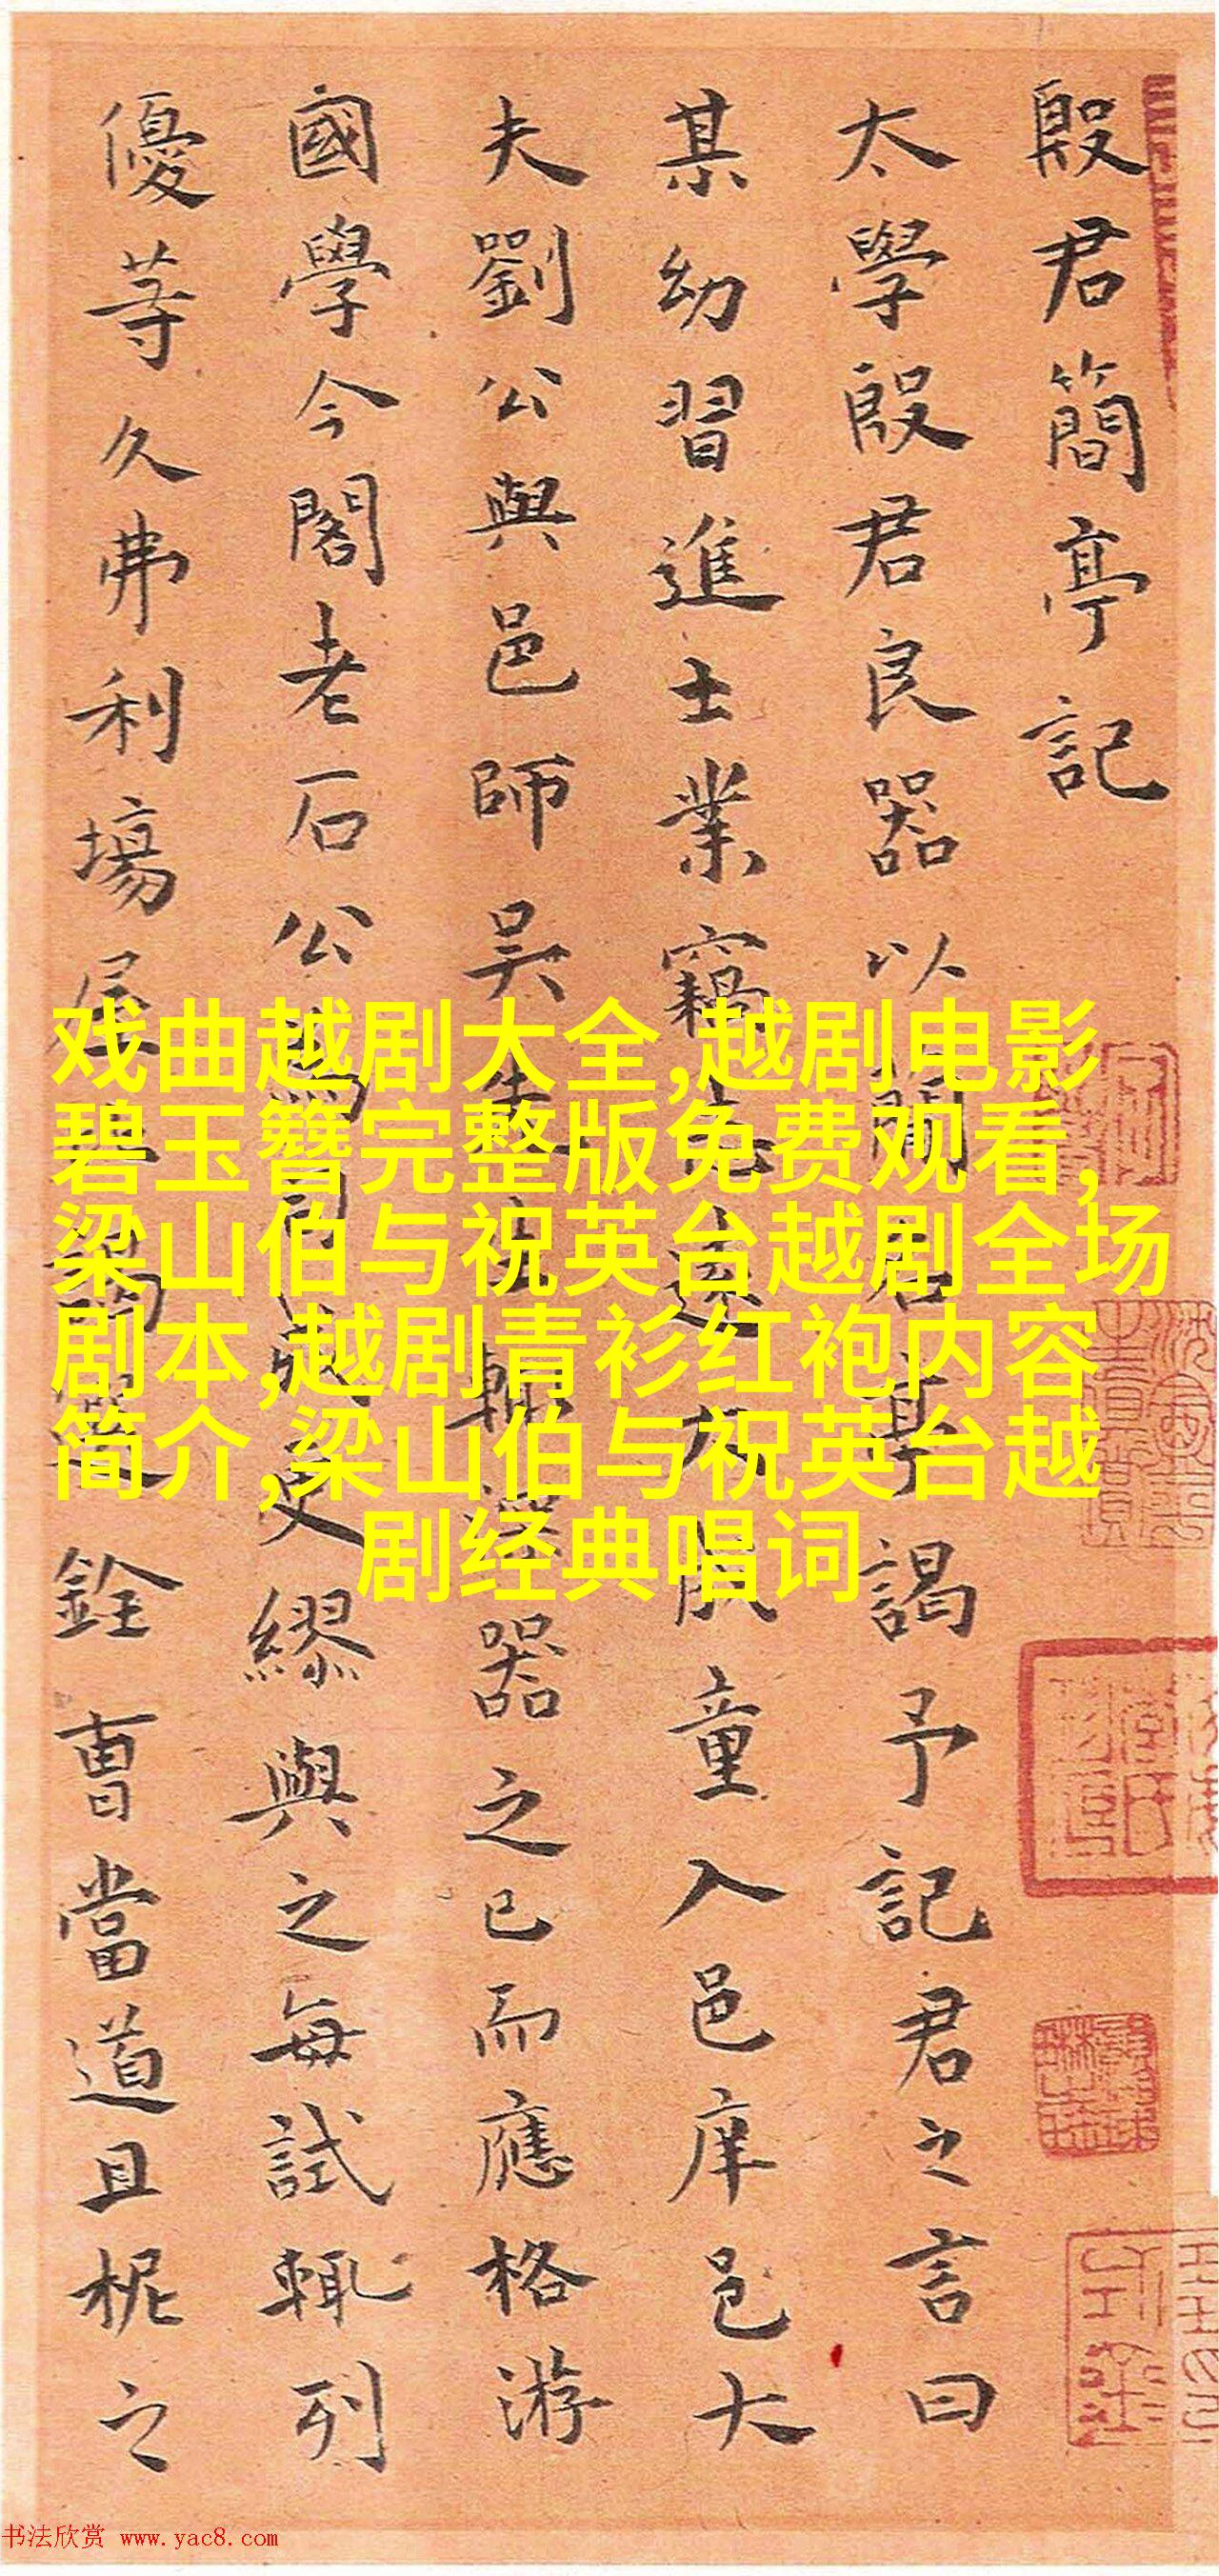 殷君簡亭記
太學殷君良器以簡名亭謁予記君之言曰
某幼習進士業竊志遠大童入邑庠邑大
夫劉公與邑師吳先生輒深器之已而應格游
國學今閣老石公為司成又繆與之每試輒列
優等久弗利場屋銓曹當道且柅之
戏曲越剧大全,越剧电影
碧玉簪完整版免费观看,
梁山伯与祝英台越剧全场
剧本,越剧青衫红袍内容
简介,梁山伯与祝英台越
剧经典唱词
书法欣赏 www.yac8.com